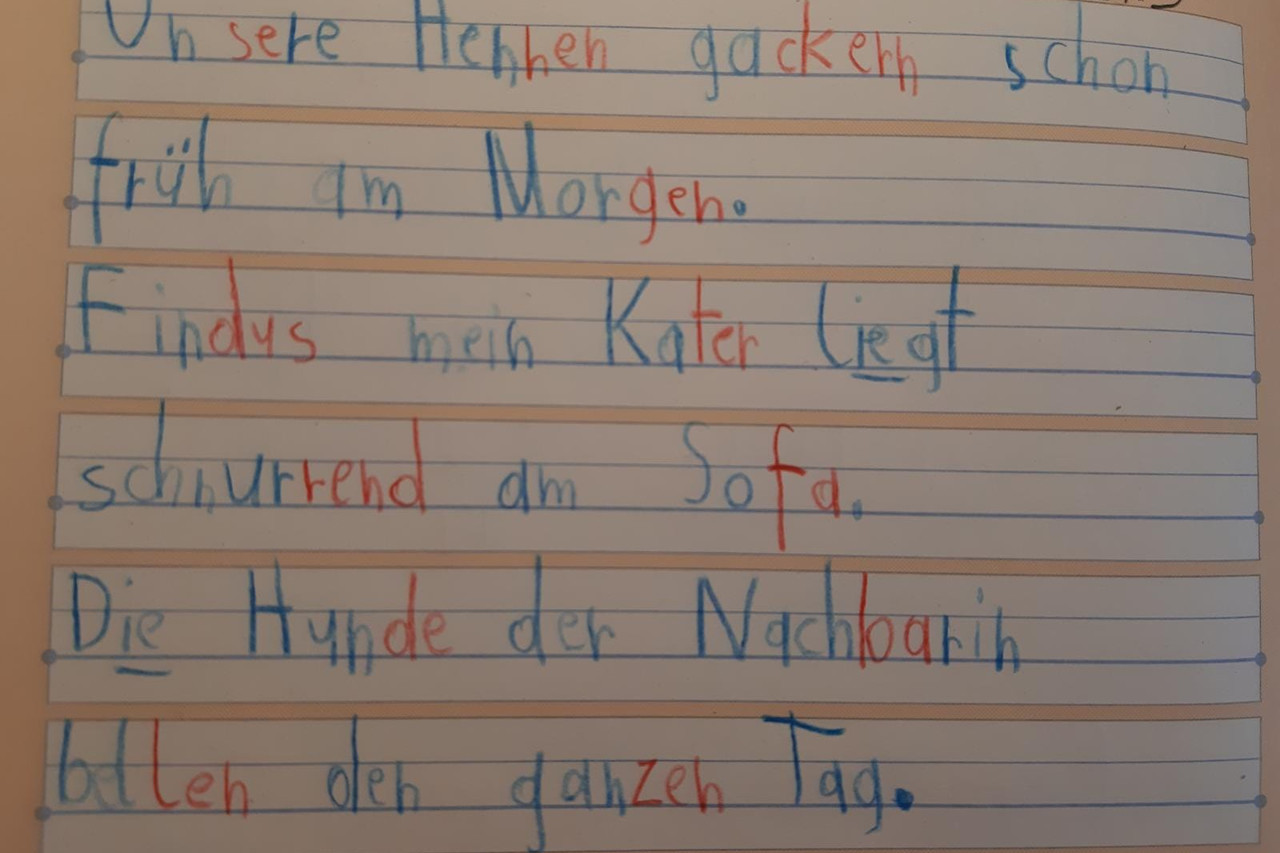 Unsere Hennen gackern schon
früh am Morgen.
Findus mein Kater liegt
schnurrend am Sofa.
Die Hunde der Nachbarin
ballen den ganzen Tag.